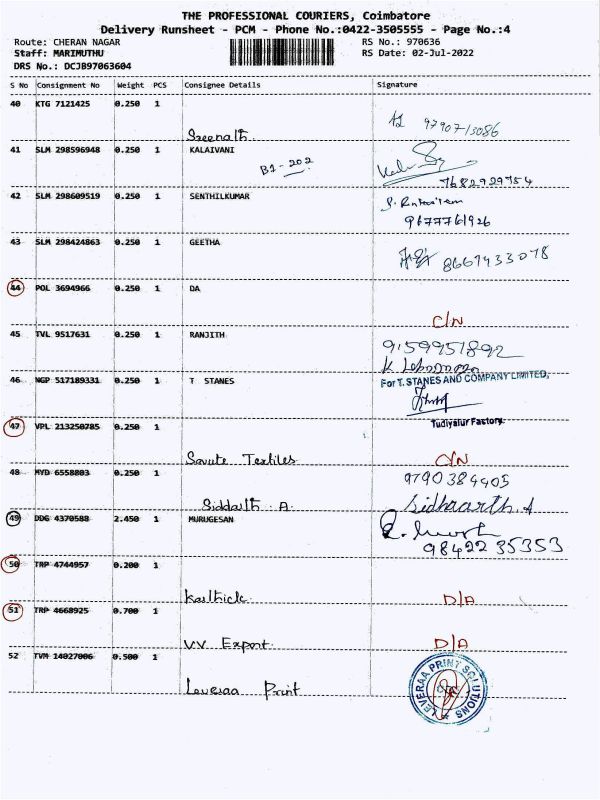 THE PROFESSIONAL COURIERS, Coimbatore
Delivery Runsheet - PCM - Phone No.:0422-3505555 - Page No.:4
Route: CHERAN NAGAR RS No.: 970636
Staff: MARIMUTHU RS Date: 02-Jul-2022
DRS No.: DCJB97063604
S No Consignment No Weight PCS Consignee Details Signature
40 KTG 7121425 0.250 1
Sreenath 9790713086
41 SLM 298596948 0.250 1 KALAIVANI
B1-202
7682929754
42 SLM 298609519 0.250 1 SENTHILKUMAR
9677761926
43 SLM 298424863 0.250 1 GEETHA
8667433078
44 POL 3694966 0.250 1 DA
C/N
45 TVL 9517631 0.250 1 RANJITH
9159951892
46 NGP 517189331 0.250 1 T STANES
For T. STANES AND COMPANY LIMITED,
Tudiyalur Factory.
47 VPL 213250785 0.250 1
Savute Textiles C/N
48 MYD 6558803 0.250 1 9790384405
Siddarth A Sidhaarth A
49 DDG 4370588 2.450 1 MURUGESAN
9842235353
50 TRP 4744957 0.200 1
Karthick D/A
51 TRP 4668925 0.700 1
VV Export D/A
52 TVM 14027006 0.500 1
Leveraa Print
LEVERAA PRINT SOLUTIONS